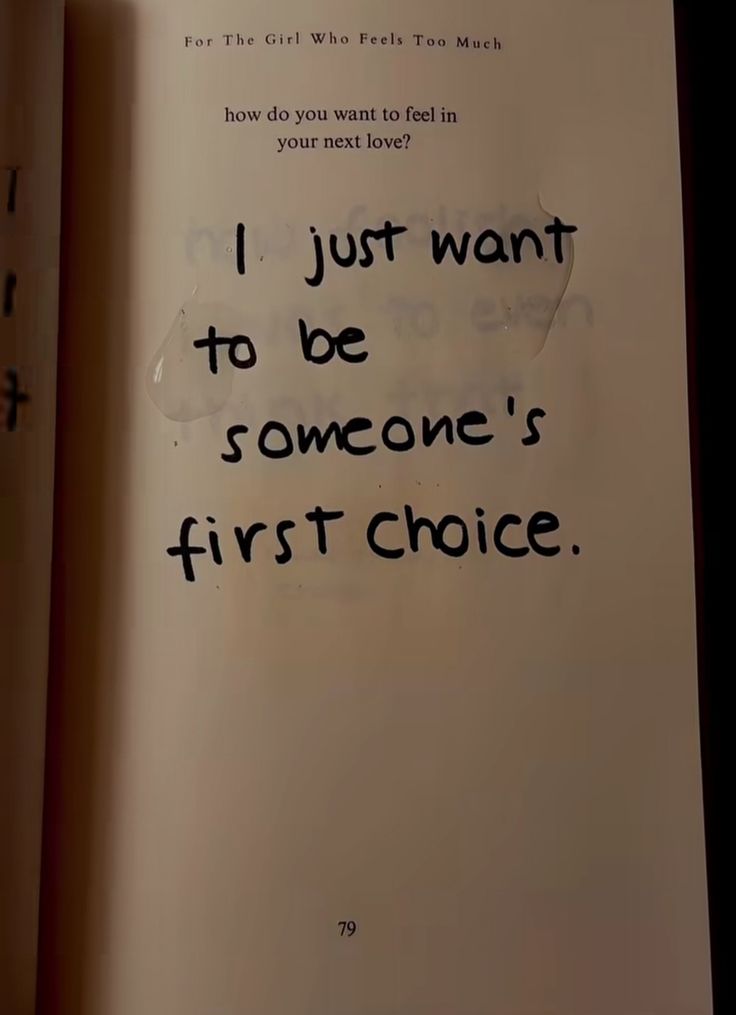 For The Girl Who Feels Too Much
how do you want to feel in
your next love?
I just want
to be
someone's
first choice.
79